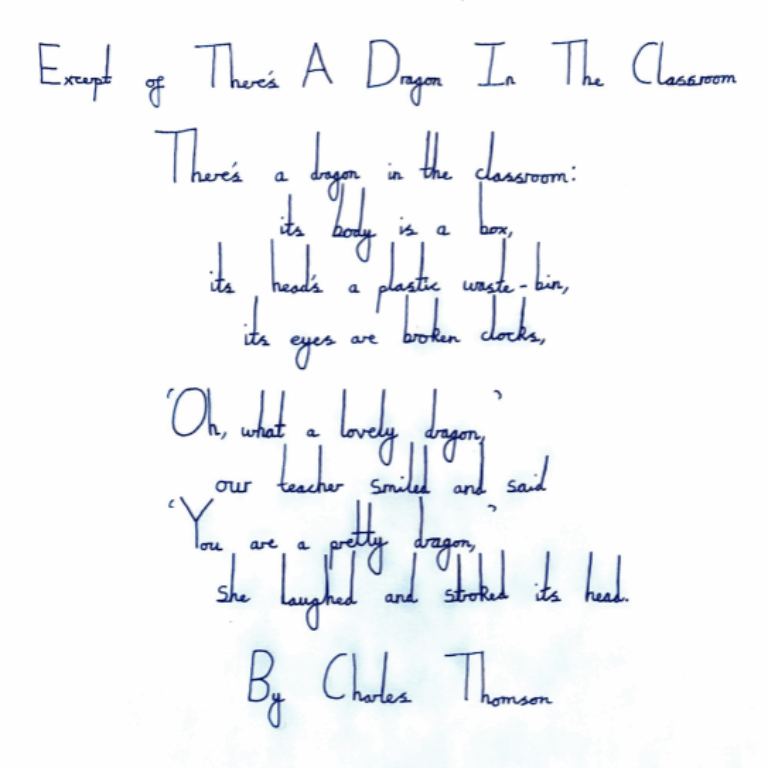 Except of There's A Dragon In The Classroom
There's a dragon in the classroom:
its body is a box,
its head's a plastic waste-bin,
its eyes are broken clocks,
'Oh, what a lovely dragon,'
our teacher smiled and said
'You are a pretty dragon,'
She laughed and stroked its head.
By Charles Thomson